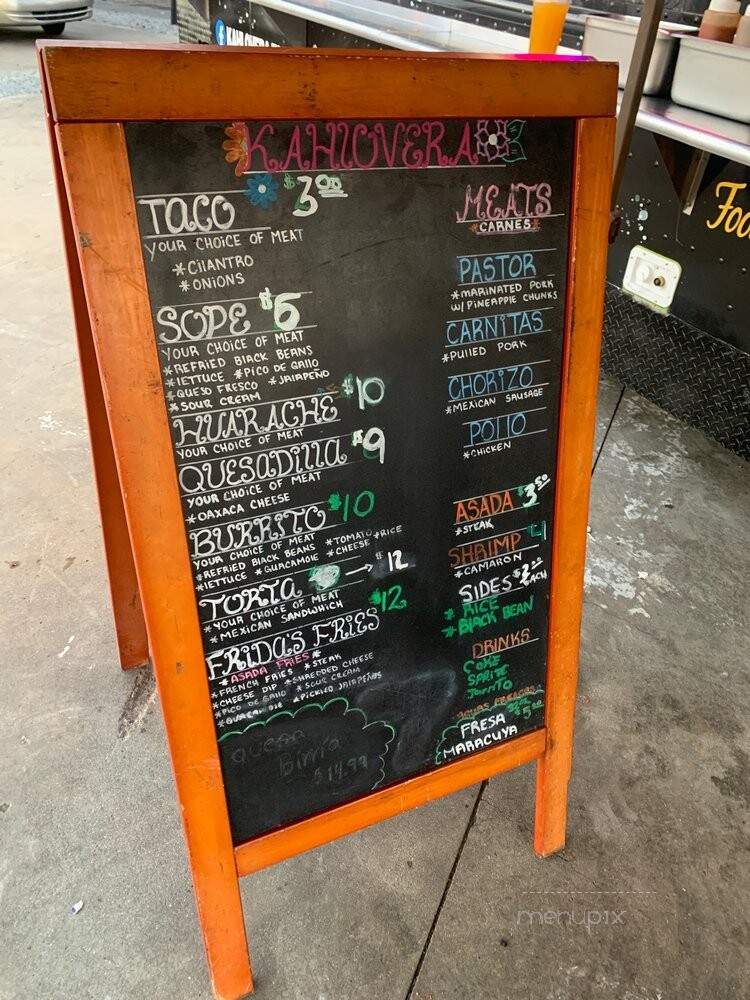 KAHLOVERA
TACO $3.00
YOUR CHOICE OF MEAT
*CILANTRO
*ONIONS
SOPE $6
YOUR CHOICE OF MEAT
*REFRIED BLACK BEANS
*LETTUCE *PICO DE GALLO
*QUESO FRESCO *JALAPEÑO
*SOUR CREAM
HUARACHE $10
YOUR CHOICE OF MEAT
QUESADILLA $9
YOUR CHOICE OF MEAT
*OAXACA CHEESE
BURRITO $10
YOUR CHOICE OF MEAT *TOMATO *RICE
*REFRIED BLACK BEANS *CHEESE
*LETTUCE *GUACAMOLE
TORTA → $12
*YOUR CHOICE OF MEAT
*MEXICAN SANDWHICH
FRIDA'S FRIES $12
*ASADA FRIES*
*FRENCH FRIES *STEAK
*CHEESE DIP *SHREDDED CHEESE
*PICO DE GALLO *SOUR CREAM
*GUACAMOLE *PICKLED JALAPEÑOS
QUESA
birria
$14.99
MEATS
*CARNES*
PASTOR
*MARINATED PORK
W/ PINEAPPLE CHUNKS
CARNITAS
*PULLED PORK
CHORIZO
*MEXICAN SAUSAGE
POLLO
*CHICKEN
ASADA $3.50
*STEAK
SHRIMP $4
*CAMARON
SIDES $2.00 EACH
*RICE
*BLACK BEAN
DRINKS
COKE
SPRITE
JARRITO
AGUAS FRESCAS
$5.00
FRESA
MARACUYA
Foo
menupix